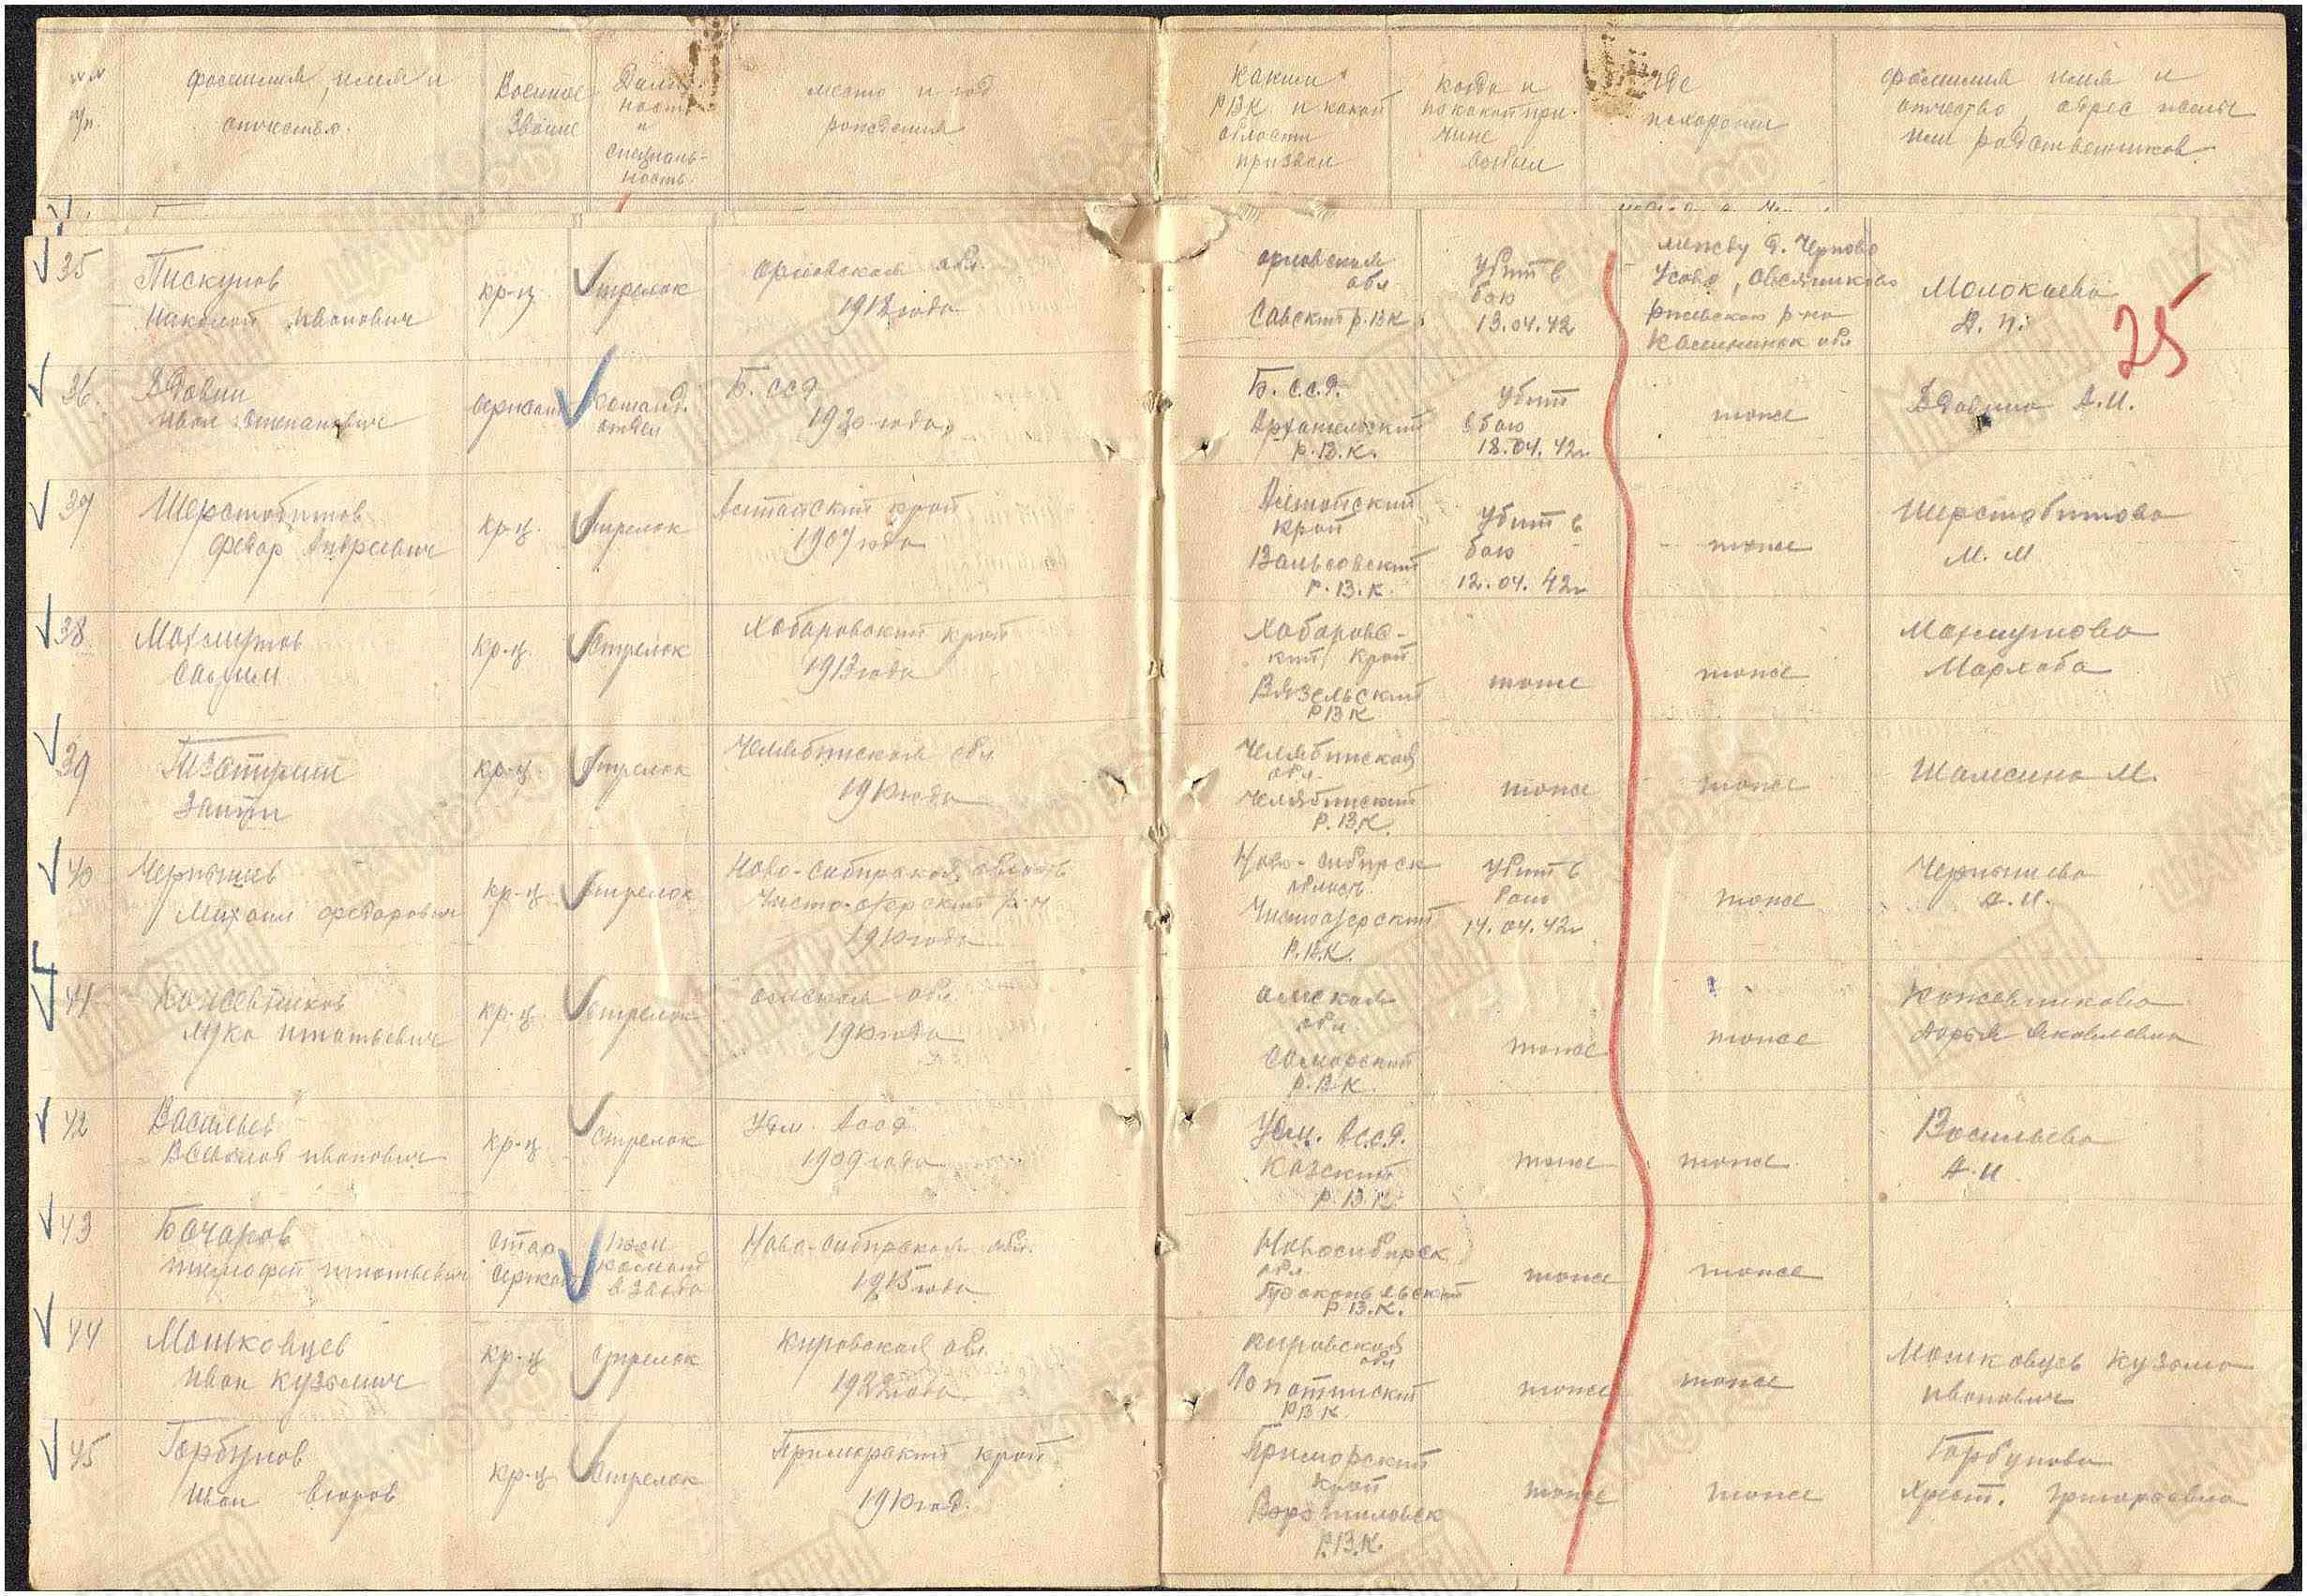 №№
п/п.
фамилия, имя и
отчество.
Военное
Звание
Долж-
ность
и
специаль-
ность.
место и год
рождения
каким
РВК и какой
области
призван
когда и
по какой при-
чине
выбыл
где
похоронен
фамилия имя и
отчество, адрес жены
или родственников.
35
Пискунов
Николай Иванович
кр-ц
Стрелок
Орловская обл.
1918 года
орловская
обл
Савский р.ВК
Убит в
бою
13.04.42
между д. Чертово
Усово, Овсянниково
Ржевского р-на
Калининск обл
Молокаева
А. П.
25
36.
Вдовин
Иван Степанович
сержант
Команд.
отдел
Б. ССР
1920 года
Б. С.С.Р.
Архангельский
Р.В.К.
Убит
в бою
18.04.42г
тоже
Вдовина А.И.
37
Шерстобитов
Федор Андреевич
кр-ц.
Стрелок
Алтайский край
1907 года
Алтайский
край
Вальсовский
Р.В.К.
Убит в
бою
12.04.42г
тоже
Шерстобитова
М. М
38
Махмутов
Салим
кр-ц.
Стрелок
Хабаровский край
1913 года
Хабаровс-
кий край
Вяземский
РВК
тоже
тоже
Махмутова
Мархаба
39
Зайти
кр-ц.
Стрелок
Челябинская обл
1910 года
Челябинская
обл.
Челябинский
Р.В.К.
тоже
тоже
Шамсина М.
40
Чернышев
Михаил Федорович
кр-ц
Стрелок
Ново-Сибирская область
Чисто-озерский р-н
1910 года
Ново-Сибирск
область
Чистоозерский
Р.В.К.
Убит в
бою
14.04.42г
тоже
Чернышева
А.И.
41
Кожевников
Лука Игнатьевич
кр-ц.
Стрелок
Омская обл
1910 года
Омская
обл.
Саморский
Р.В.К.
тоже
тоже
Кожевникова
Дарья Яковлевна
42
Васильев
Василий Иванович
кр-ц
Стрелок
Удм. АССР
1909 года
Удм. АССР.
Казский
Р.В.К.
тоже
тоже
Васильева
А.И
43
Бочаров
Тимофей Игнатьевич
Стар.
сержант
пом
команд
взвода
Ново-Сибирская обл.
1915 года
Новосибирск
обл
Прокопьевский
Р.В.К.
тоже
тоже
44
Мошковцев
Иван Кузьмич
кр-ц
Стрелок
Кировская обл
1922 года
Кировская
обл
Лопатинский
РВК
тоже
тоже
Мошковцев Кузьма
Иванович
45
Горбунов
Иван Егоров
кр-ц
Стрелок
Приморский край
1910 год.
Приморский
край
Ворошиловск
Р.В.К.
тоже
тоже
Горбунова
Христ. Григорьевна